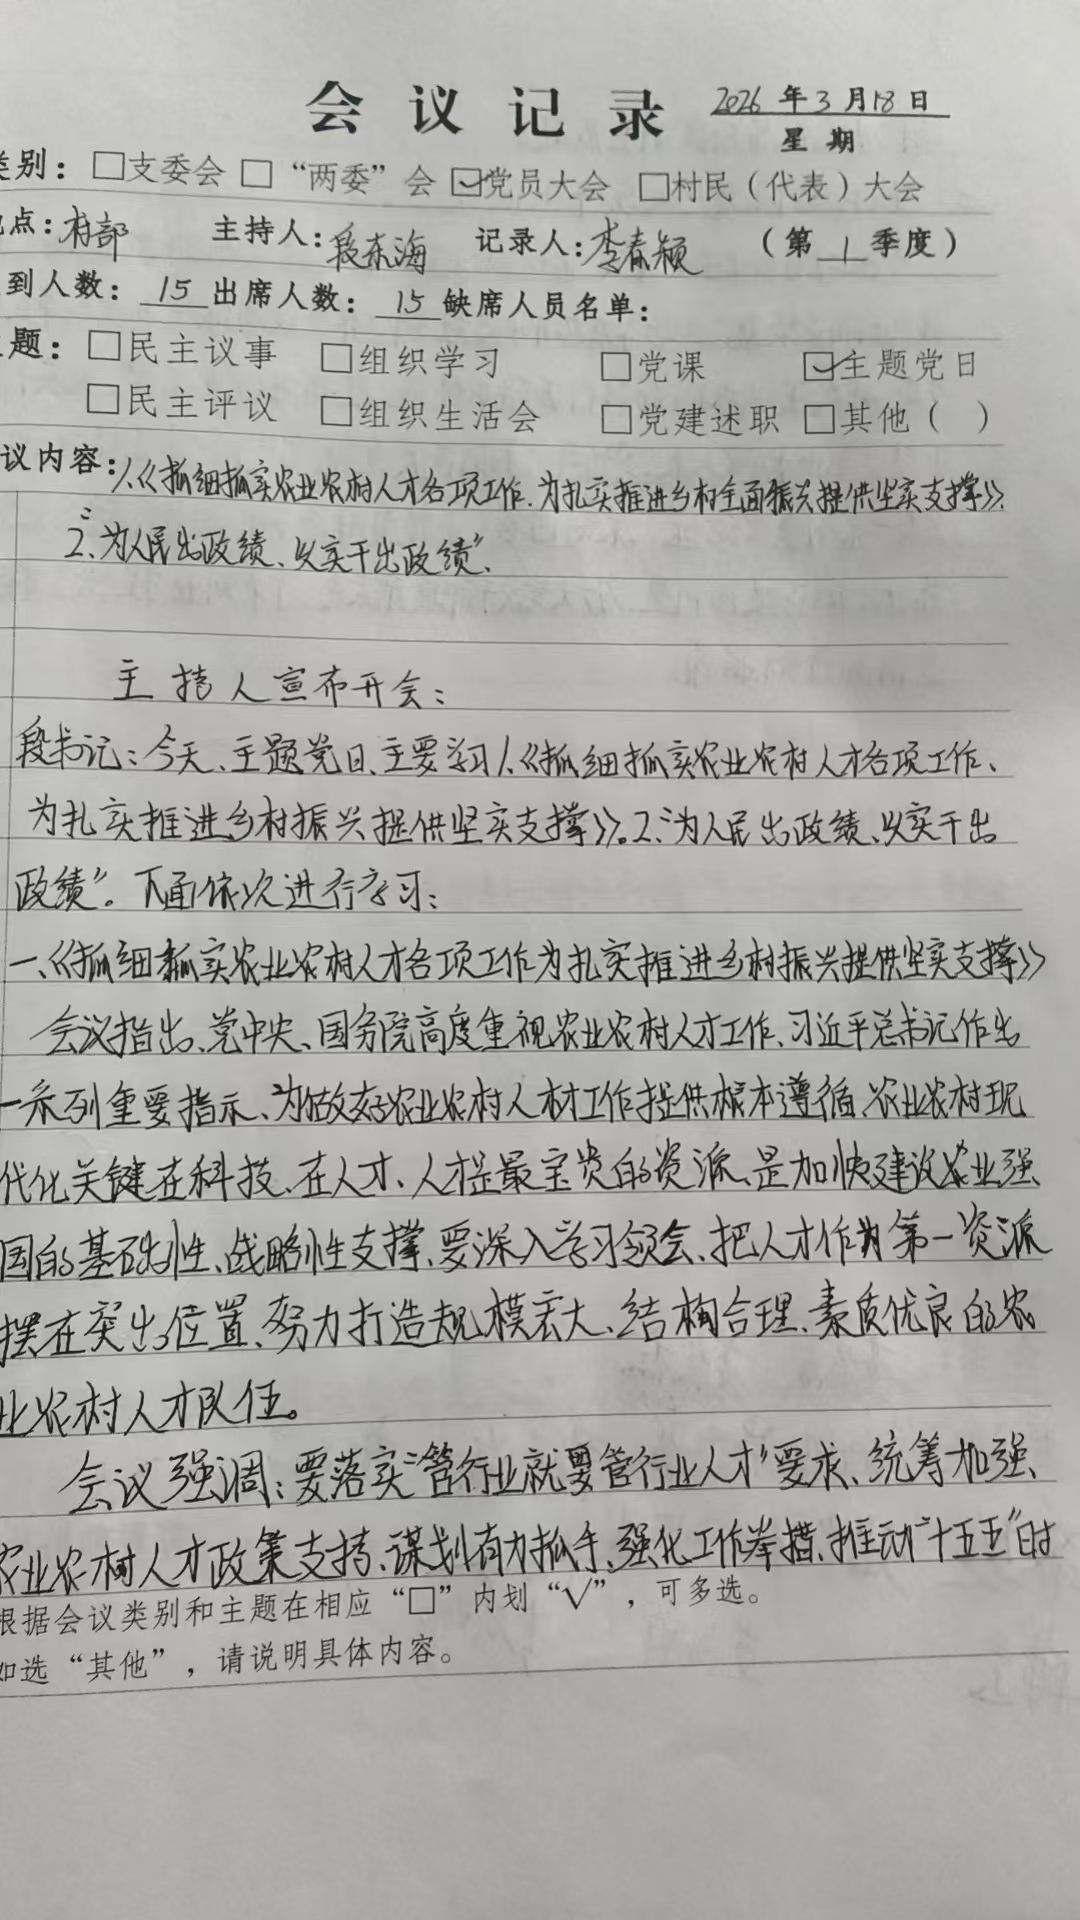 会议记录 2026年3月18日
星期
类别：□支委会 □“两委”会 ☑党员大会 □村民（代表）大会
点：村部 主持人：段东海 记录人：李春颖 （第1季度）
到人数：15 出席人数：15 缺席人员名单：
题：□民主议事 □组织学习 □党课 ☑主题党日
□民主评议 □组织生活会 □党建述职 □其他（ ）
议内容：1.《抓细抓实农业农村人才各项工作、为扎实推进乡村全面振兴提供坚实支撑》
2、“为人民出政绩、以实干出政绩”、
主持人宣布开会：
段书记：今天、主题党日、主要学习1、《抓细抓实农业农村人才各项工作、
为扎实推进乡村振兴提供坚实支撑》。2、“为人民出政绩、以实干出
政绩”。下面依次进行学习：
一、《抓细抓实农业农村人才各项工作为扎实推进乡村振兴提供坚实支撑》
会议指出、党中央、国务院高度重视农业农村人才工作、习近平总书记作出
一系列重要指示、为做好农业农村人材工作提供根本遵循、农业农村现
代化关键在科技、在人才、人才是最宝贵的资源、是加快建设农业强
国的基础性、战略性支撑、要深入学习领会、把人才作为第一资源
摆在突出位置、努力打造规模宏大、结构合理、素质优良的农
业农村人才队伍。
会议强调：要落实“管行业就要管行业人才”要求、统筹加强
农业农村人才政策支持、谋划有力抓手、强化工作举措、推动“十五五”时
根据会议类别和主题在相应“□”内划“√”，可多选。
如选“其他”，请说明具体内容。